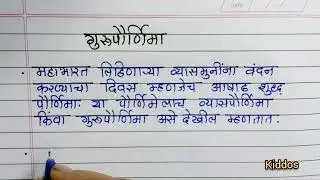 गुरुपौर्णिमा
• महाभारत लिहिणाऱ्या व्यासमुनींना वंदन
करण्याचा दिवस म्हणजेच आषाढ शुद्ध
पौर्णिमा. या पौर्णिमेलाच व्यासपौर्णिमा
किंवा गुरुपौर्णिमा असे देखील म्हणतात.
•
Kiddos